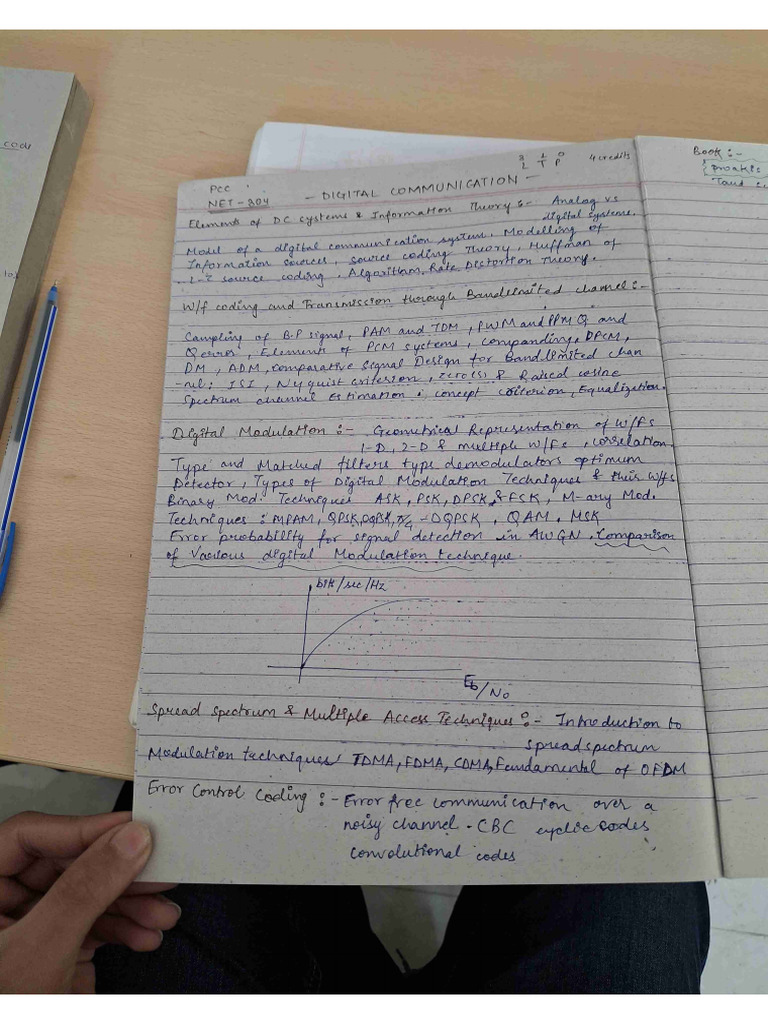 code
PCC
NET-304
3 1 0
L T P
4 credits
- DIGITAL COMMUNICATION -
Book :-
Proakis
Taud
Elements of DC systems & Information Theory :- Analog vs
digital systems.
Model of a digital communication system, Modelling of
Information sources, source coding Theory, Huffman of
L-Z source coding, Algorithm, Rate Distortion Theory.
W/f coding and Transmission through Bandlimited channel :-
Sampling of B.P signal, PAM and TDM, PWM and PPM Q and
Qerror, Elements of PCM systems, companding, DPCM,
DM, ADM, comparative signal Design for Bandlimited chan
-nel: ISI, Nyquist criterion, & Raised cosine
spectrum channel Estimation: concept criterion, Equalization.
Digital Modulation :- Geometrical Representation of W/Fs
1-D, 2-D & multiple W/Fs, correlation
Type and Matched filters type demodulators optimum
Detector, Types of Digital Modulation Techniques & their W/fs
Binary Mod. Techniques ASK, PSK, DPSK & FSK, M-ary Mod.
Techniques : MPAM, QPSK, OQPSK, π/4 -DQPSK, QAM, MSK
Error probability for signal detection in AWGN, Comparison
of Various digital Modulation technique.
bit/sec/Hz
Eb/No
Spread spectrum & Multiple Access Techniques :- Introduction to
spreadspectrum
Modulation techniques TDMA, FDMA, CDMA, Fundamental of OFDM
Error Control Coding :- Error free communication over a
noisy channel. CBC cyclic codes
convolutional codes